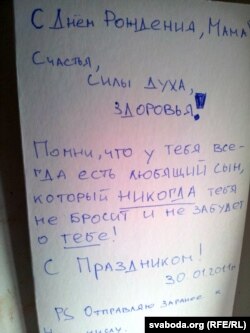 С Днём Рождения, Мама
Счастья,
Силы духа,
Здоровья!
Помни, что у тебя все-
гда есть любящий сын,
который НИКОГДА тебя
не бросит и не забудет
о тебе!
С Праздником!
30.01.2011г
PS Отправляю заранее
числу.
svaboda.org (RFE/RL)